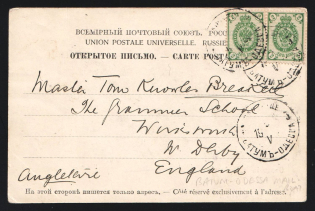 ВСЕМІРНЫЙ ПОЧТОВЫЙ СОЮЗЪ. РОССІЯ
UNION POSTALE UNIVERSELLE. RUSSIE
ОТКРЫТОЕ ПИСЬМО. — CARTE POSTALE
Master Tom Knowles
The Grammar School
Wirksworth
W. Derby
England
Angleterre
БАТУМЪ-ОДЕС
15
V
На этой сторонѣ пишется только адресъ. — Côté réservé exclusivement à l'adresse.